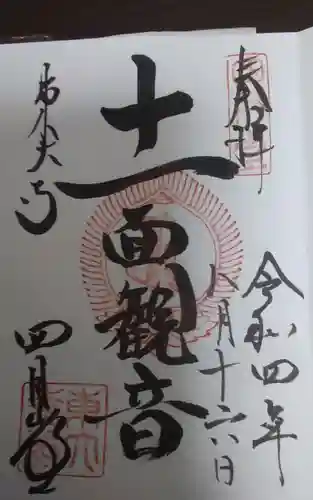 奉拝
令和四年
八月十六日
十一面観音
東大寺
四月堂